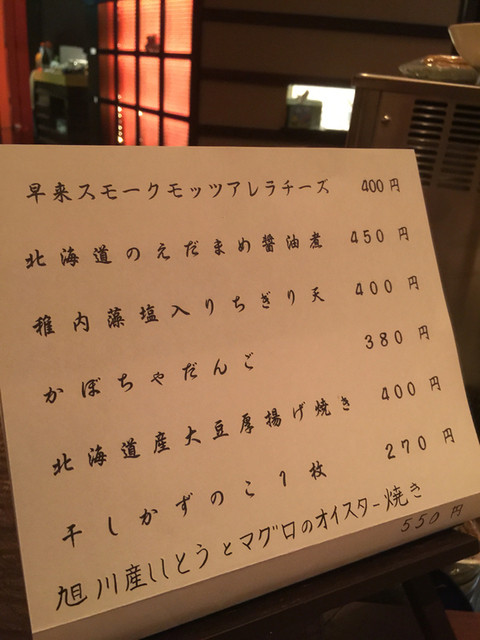 早来スモークモッツアレラチーズ 400円
北海道のえだまめ醤油煮 450円
稚内藻塩入りちぎり天 400円
かぼちゃだんご 380円
北海道産大豆厚揚げ焼き 400円
干しかずのこ1枚 270円
旭川産ししとうとマグロのオイスター焼き
550円